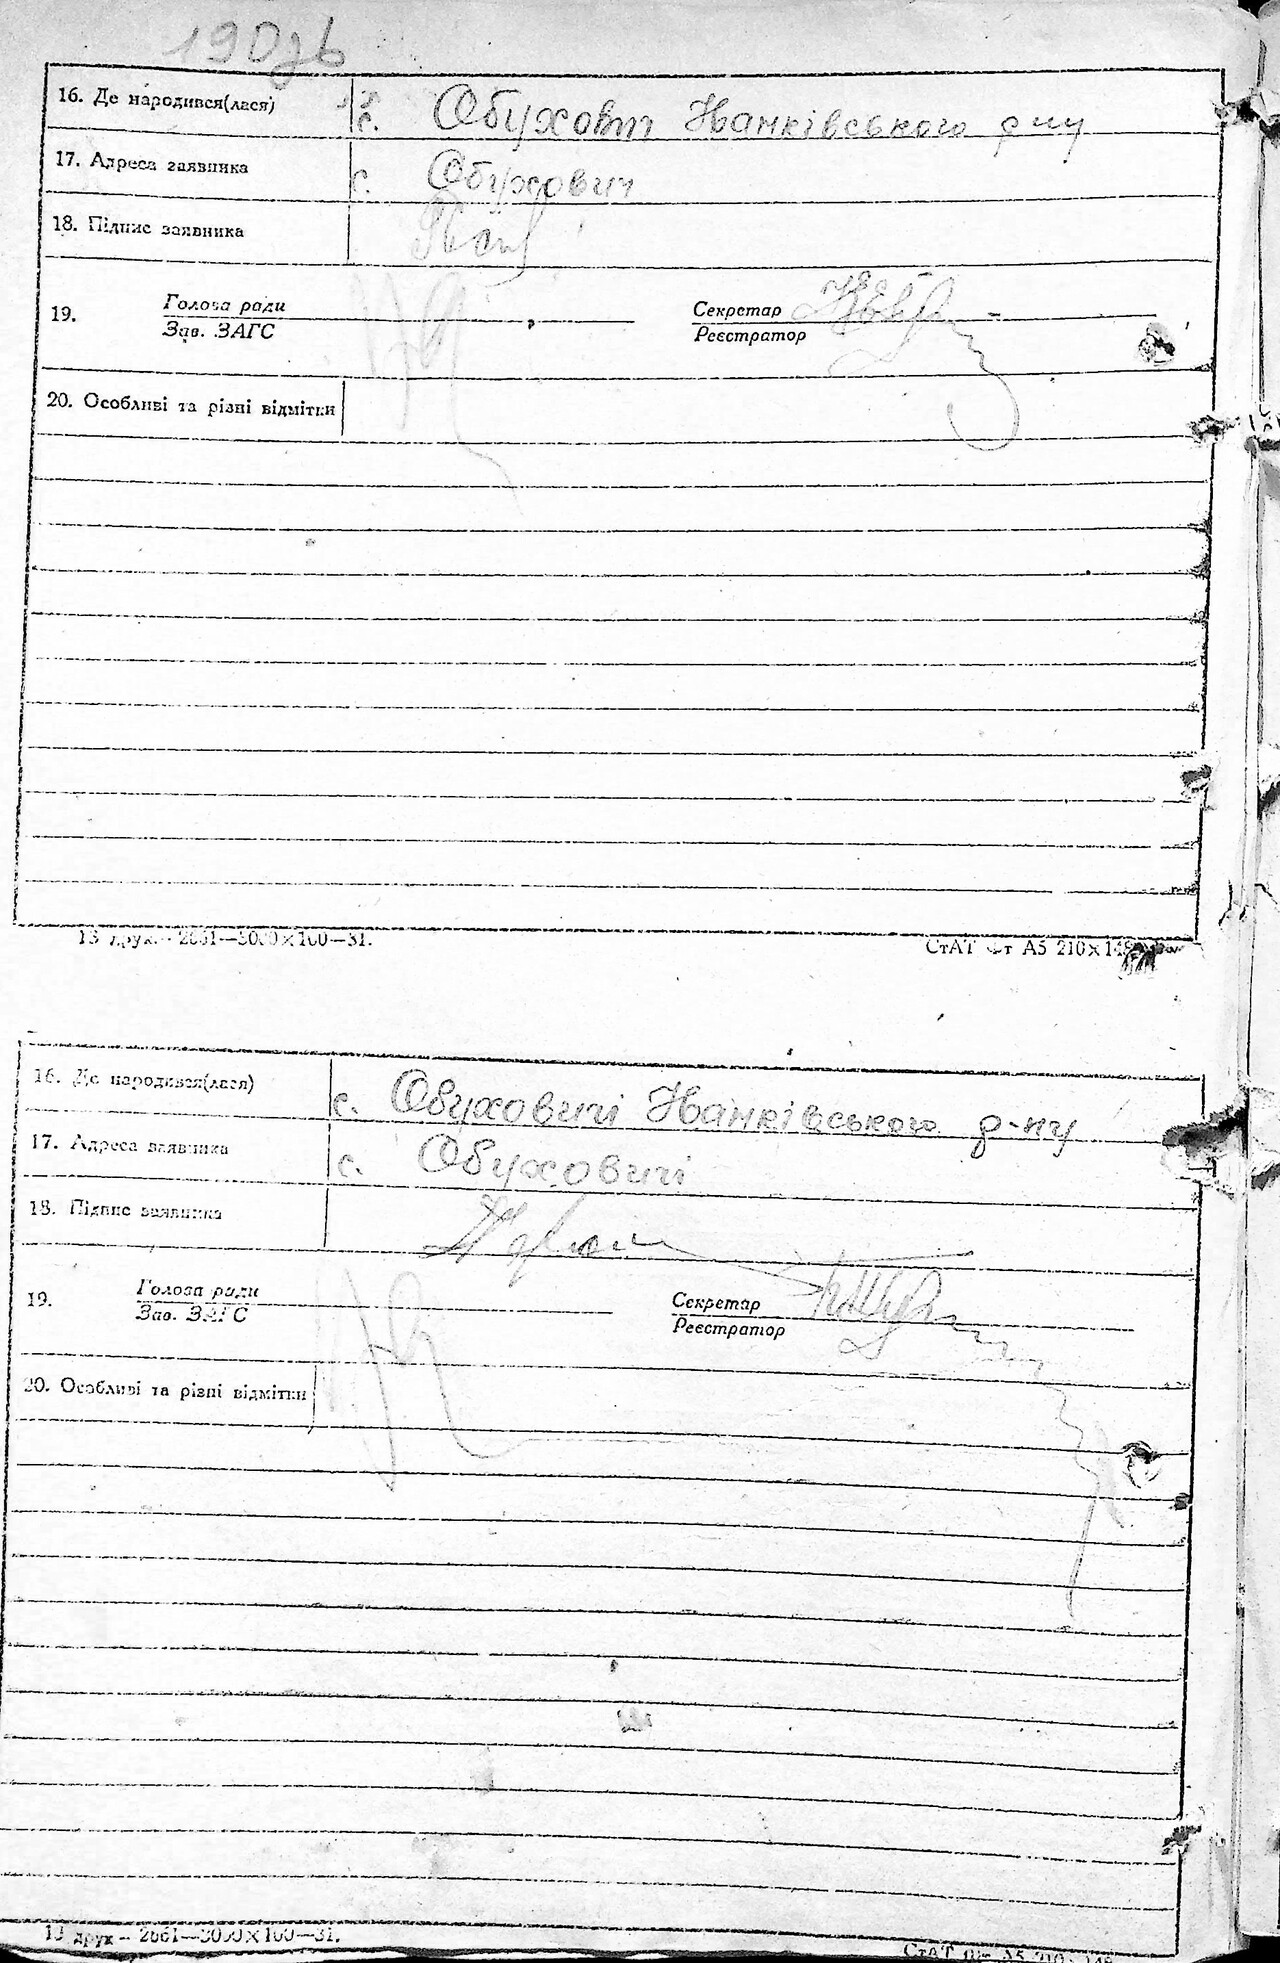 190зв
16. Де народився(лася) с. Обухови Іванківського р-ну
17. Адреса заявника с. Обухович
18. Підпис заявника
19. Голова ради Секретар
Зав. ЗАГС Реєстратор
20. Особливі та різні відмітки
13 друк.– 2661—3000×100—31. СтАТ Фт А5 210×148
16. Де народився(лася) с. Обуховичі Іванківського р-ну
17. Адреса заявника с. Обуховичі
18. Підпис заявника
19. Голова ради Секретар
Зав. ЗАГС Реєстратор
20. Особливі та різні відмітки
13 друк – 2661—3000×100—31. СтАТ Фт А5 210×148